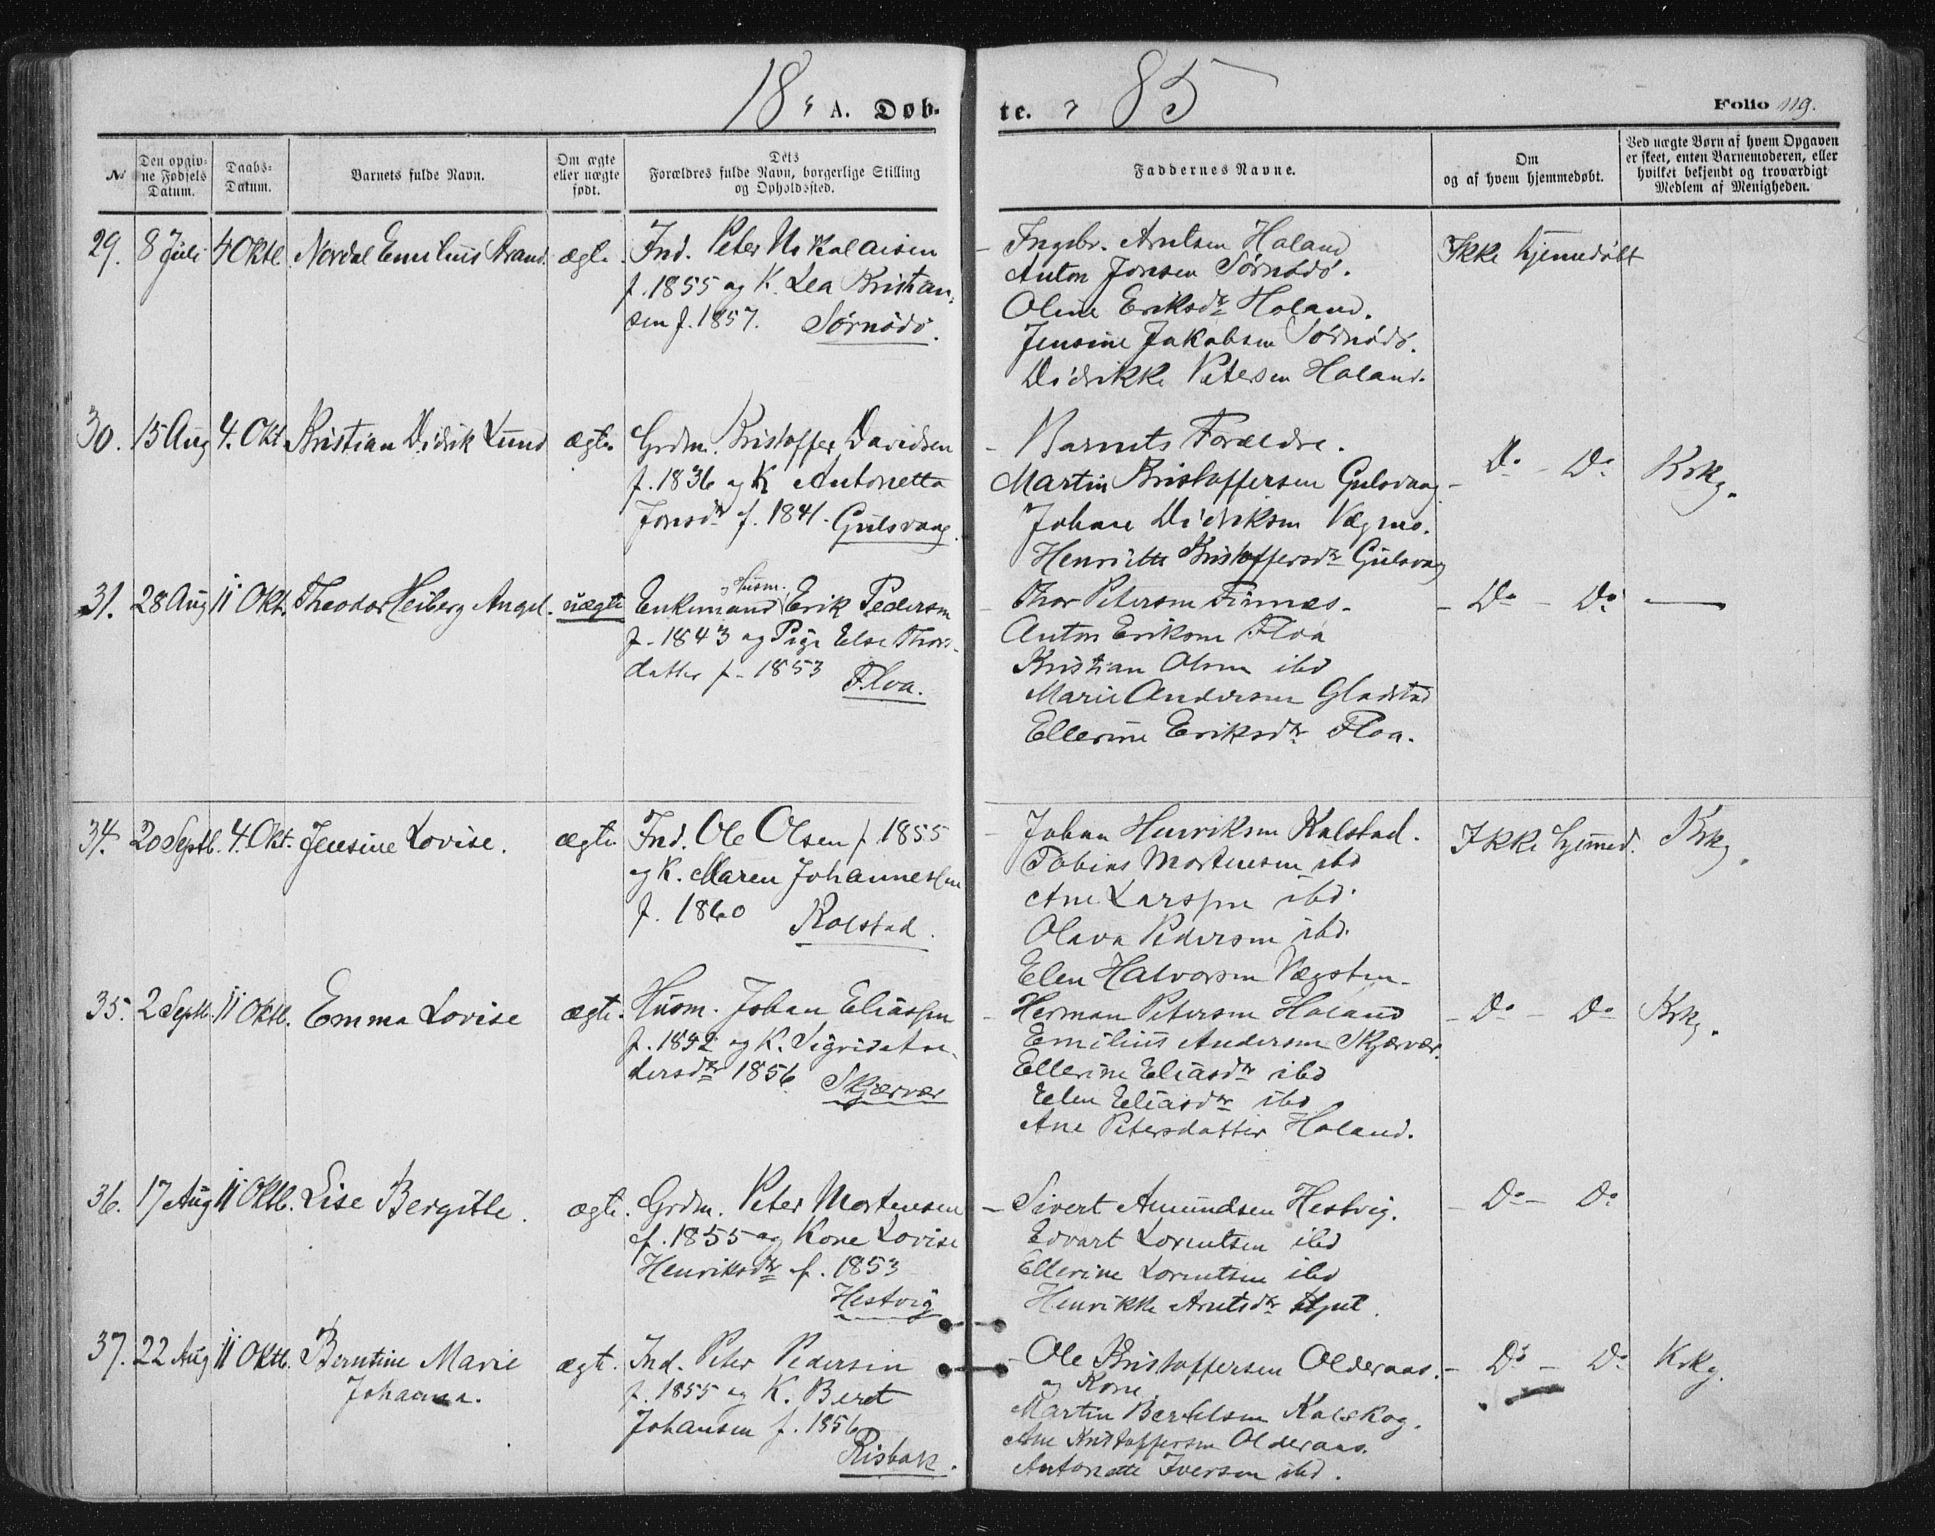 18 A. Døb-
te. 85
Folio 119.
№ Den opgiv-
ne Fødsels
Datum.
Daabs-
Datum.
Barnets fulde Navn.
Om ægte
eller uægte
født.
Dets
Forældres fulde Navn, borgerlige Stilling
og Opholdssted.
Faddernes Navne.
Om
og af hvem hjemmedøbt.
Ved uægte Børn af hvem Opgaven
er skeet, enten Barnemoderen, eller
hvilket bekjendt og troværdigt
Medlem af Menigheden.
29. 8 Juli 4 Oktb. Nordal Emilius Strand. ægte. Ind. Peter Nikolaisen
f. 1855 og K. Lea Kristian-
sen f. 1857. Sørnødø.
Ingebr. Arntsen Holand
Anton Jonsen Sørnødø.
Oline Eriksdtr Holand.
Jensine Jakobsen Sørnødø.
Didrikke Petersen Holand.
Ikke hjemmedøbt
30. 15 Aug 4. Okt. Kristian Didrik Lund ægte. Grdm. Kristoffer Davidsen
f. 1836 og K Antonetta
Jonsdtr f. 1841. Gulsvaag.
Barnets Forældre.
Martin Kristoffersen Gulsvaag
Johan Didriksen Vægmo.
Henriette Kristoffersdtr Gulsvaag
Do - Do Krkg.
31. 28 Aug 11 Okt. Theodor Heiberg Angel. uægte
og Husm.
Enkemand Erik Pedersen
f. 1843 og Pige Else Thors-
datter f. 1853 Floa.
Thor Petersen Finnes.
Anton Eriksen Floa
Kristian Olsen ibd
Marie Andersen Gladstad
Ellerine Eriksdtr Floa.
- Do - Do —
34. 20 Septb. 4. Okt. Jensine Lovise. ægte. Ind. Ole Olsen f. 1855
og K. Maren Johannessen
f. 1860 Rolstad.
Johan Henriksen Kalstad.
Tobias Mortensen ibd
Ane Larssen ibd.
Olava Pedersen ibd.
Elen Halvorsen Vægsten.
Ikke hjemmed. Krkg.
35. 2 Septb. 11 Oktb. Emma Lovise ægte. Husm. Johan Eliassen
f. 1852 og K. Sigrid An-
dersdtr 1856 Skjærvær
Herman Petersen Holand
Emilius Andersen Skjærvær.
Ellerine Eliasdtr ibd
Elen Eliasdtr ibd
Ane Petersdatter Holand.
- Do - Do Krkg.
36. 17 Aug 11 Oktb. Lise Bergitte. ægte. Grdm. Peter Mortensen
f. 1855 og Kone Lovise
Henriksdtr f. 1853
Hestvig
Sivert Amundsen Hestvig.
Edvart Lorentsen ibd
Ellerine Lorentsen ibd
Henrikke Arntsdtr
- Do - Do
37. 22 Aug 11 Oktb. Berntine Marie
Johanna.
ægte. Ind. Peter Pedersen
f. 1855 og K. Beret
Johansen f. 1856
Risbak.
Ole Kristoffersen Olderaas.
og Kone.
Martin Bertelsen Kalskog.
Ane Kristoffersen Olderaas.
Antonette Iversen ibd.
- Do - Do Krkg.